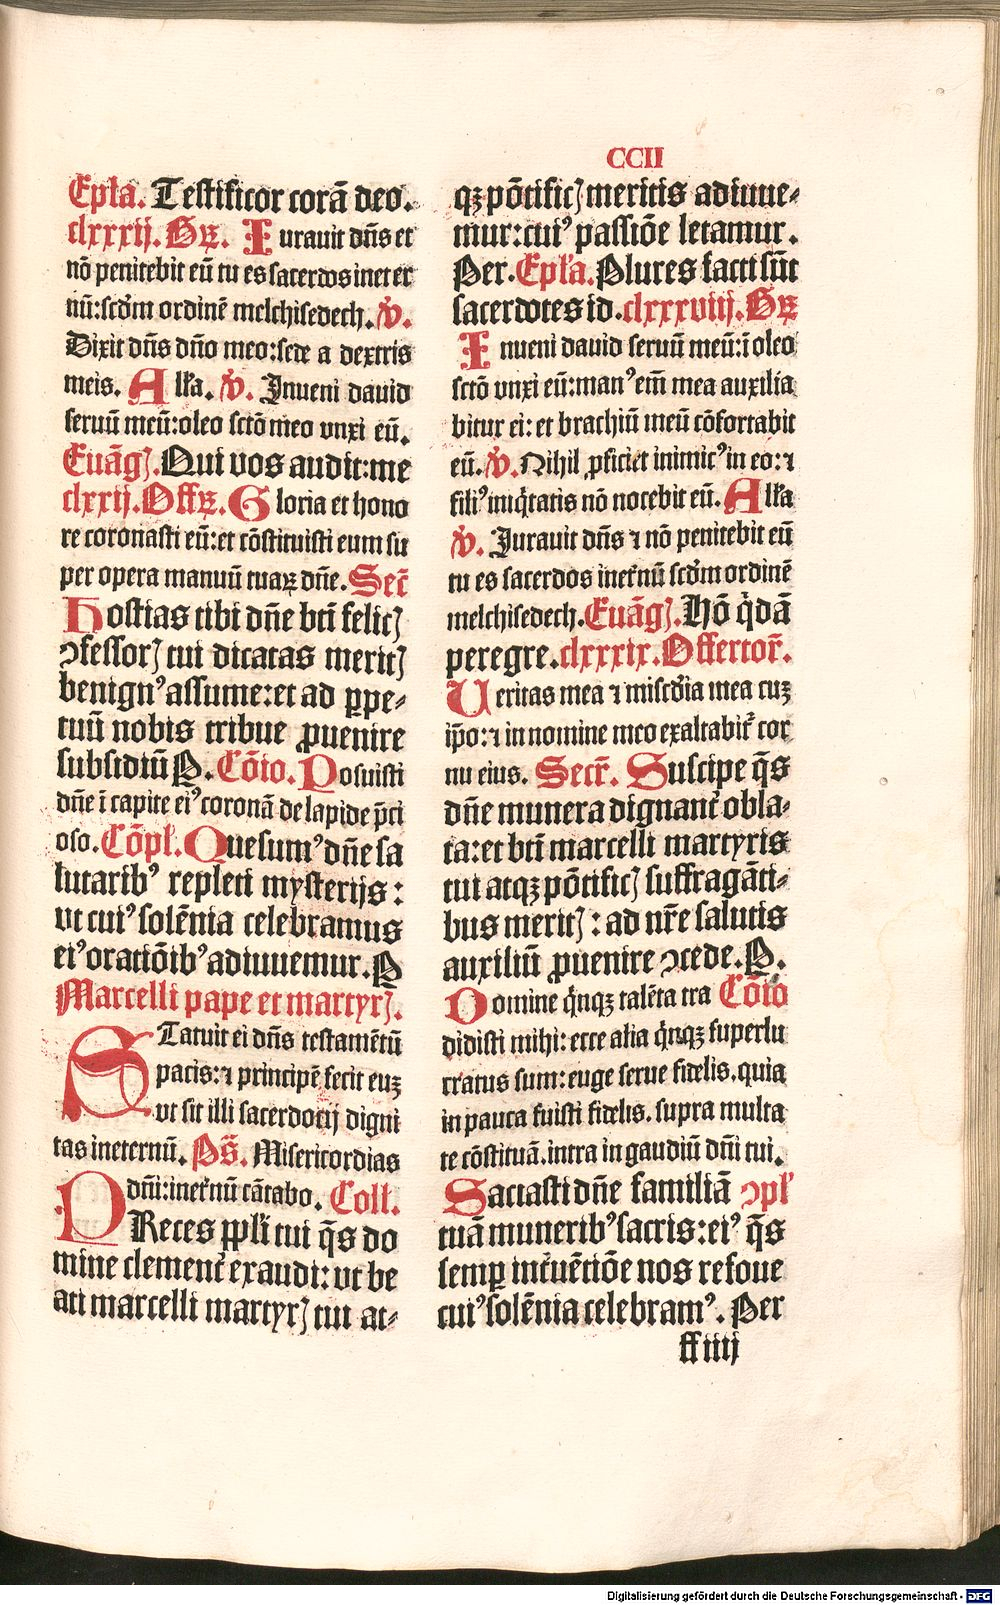 CCII
Epl'a. Testificor corā deo.
clxxxij. Gꝛ. Iurauit dn̄s et
nō penitebit eū tu es sacerdos ineter
nū: scd'm ordinē melchisedech. v̄.
Dixit dn̄s dn̄o meo: sede a dextris
meis. All'a. v̄. Inueni dauid
seruū meū: oleo sctō meo vnxi eū.
Euāgꝭ. Qui vos audit: me
clxxij. Offꝝ. Gloria et hono
re coronasti eū: et cōstituisti eum su
per opera manuū tuaꝝ dn̄e. Sec̄
Hostias tibi dn̄e bt̄i felicꝭ
ꝯfessorꝭ tui dicatas meritꝭ
benignꝰ assume: et ad ꝑpe⸗
tuū nobis tribue ꝓuenire
subsidiū P. Cōio. Posuisti
dn̄e ī capite eiꝰ coronā de lapide p̄ci
oso. Cōpl'. Quesumꝰ dn̄e sa
lutaribꝰ repleti mysterijs:
vt cuiꝰ solēnia celebramus
eiꝰ oratiōibꝰ adiuuemur. P
Marcelli pape et martyrꝭ.
Statuit ei dn̄s testamētū
pacis: ⁊ principē fecit euꝫ
vt sit illi sacerdotij digni
tas ineternū. Ps̄. Misericordias
dn̄i: inet'nū cātabo. Coll.
PReces ppl'i tui q̄s do
mine clement' exaudi: vt be
ati marcelli martyrꝭ tui at⸗
qꝫ pōtificꝭ meritis adiuue⸗
mur: cuiꝰ passiōe letamur.
Per. Epl'a. Plures facti sūt
sacerdotes id. clxxxviij. Gꝝ
Inueni dauid seruū meū: ī oleo
sctō vnxi eū: manꝰ em̄ mea auxilia
bitur ei: et brachiū meū cōfortabit
eū. v̄. Nihil ꝓficiet inimicꝰ in eo: ⁊
filiꝰ iniq̇tatis nō nocebit eū. All'a
v̄. Iurauit dn̄s ⁊ nō penitebit eū
tu es sacerdos inet'nū scd'm ordinē
melchisedech. Euāgꝭ. Hō q̇dā
peregre. clxxxix. Offertor̄.
Ueritas mea ⁊ misc̄dia mea cuꝫ
ip̄o: ⁊ in nomine meo exaltabit' cor
nu eius. Secr̄. Suscipe q̄s
dn̄e munera dignant' obla⸗
ta: et bt̄i marcelli martyris
tui atqꝫ pōtificꝭ suffragāti⸗
bus meritꝭ: ad nr̄e salutis
auxiliū ꝓuenire ꝯcede. P.
Domine q̇nqꝫ talēta tra Cōio
didisti mihi: ecce alia q̇nqꝫ superlu
cratus sum: euge serue fidelis. quia
in pauca fuisti fidelis. supra multa
te cōstituā. intra in gaudiū dn̄i tui.
Saciasti dn̄e familiā ꝯpl'
tuā muneribꝰ sacris: eiꝰ q̄s
semꝑ int'uētiōe nos refoue
cuiꝰ solēnia celebramꝰ. Per
ff iiij
Digitalisierung gefördert durch die Deutsche Forschungsgemeinschaft - DFG